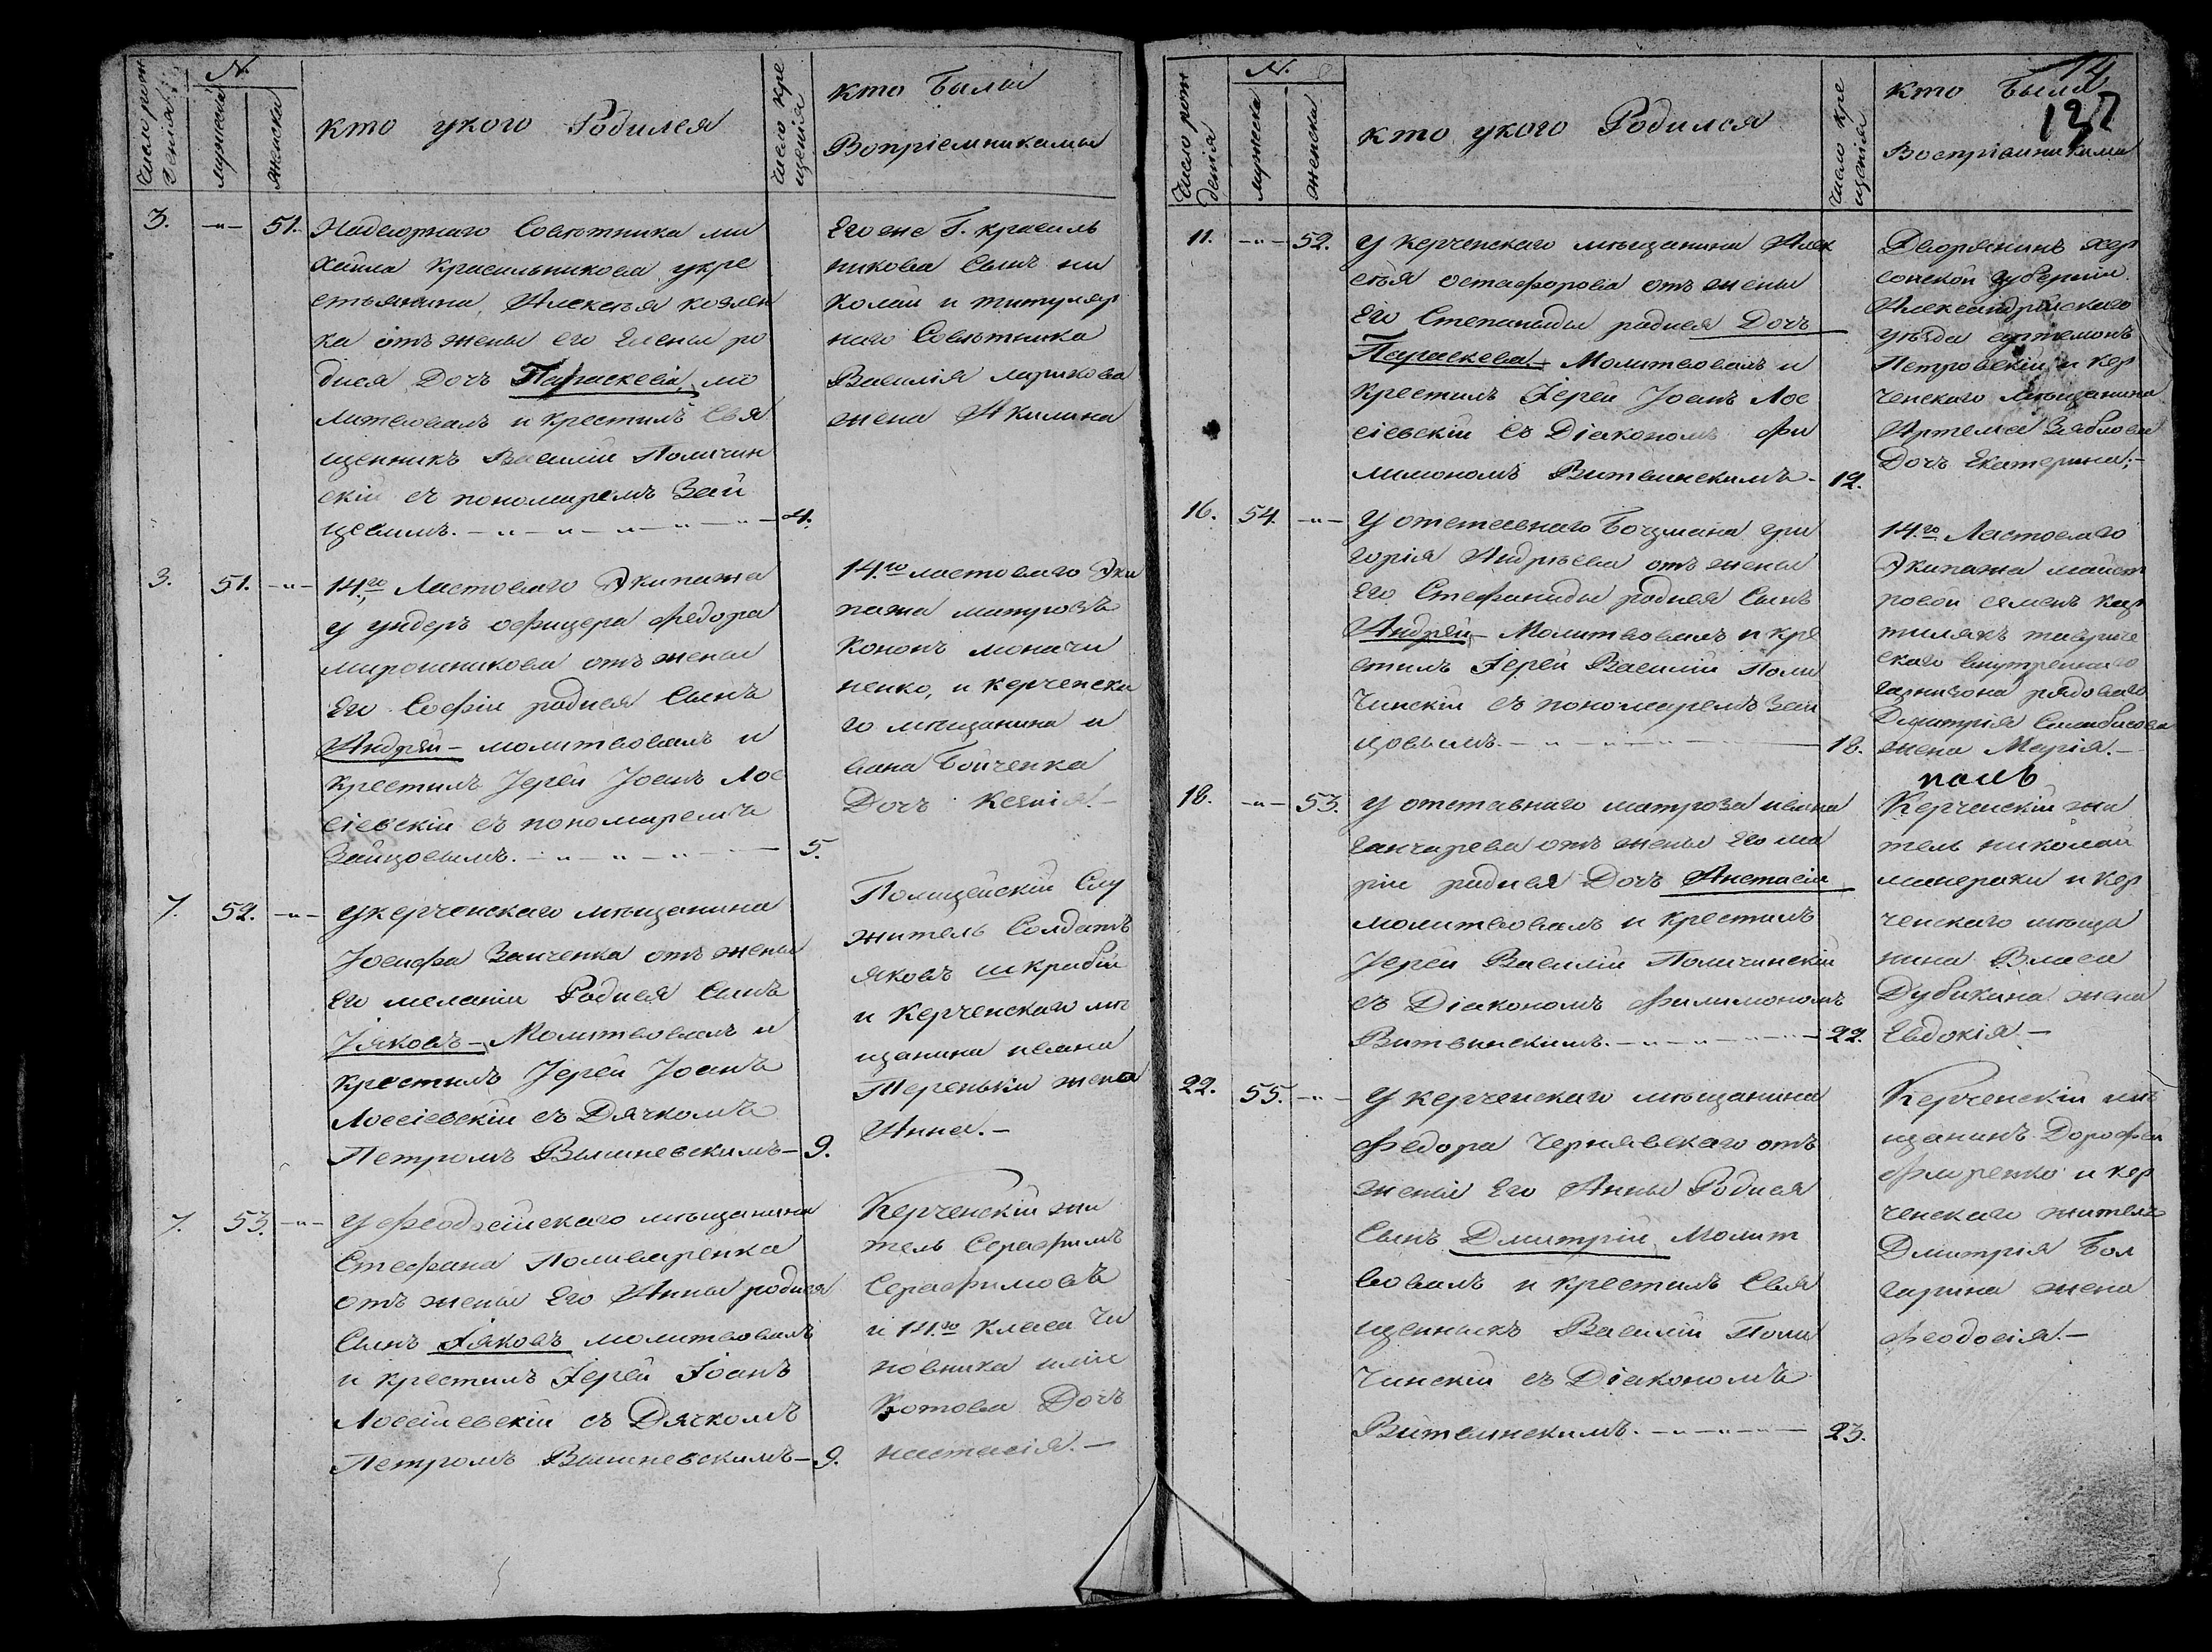 Число рож
денія
№.
мужеска
женска
кто укого Родился
Число кре
щенія
кто Былы
Вопріемникамы
3.
-"-
51.
Надворнаго Советника ми
хайла Красильникова укре
стьянина, Алексъя козлен
ка отъ жены его Елены ро
дися Дочъ Параскевія, мо
литвовалъ и крестилъ Свя
щенникъ Василій Поличин
скій съ пономаремъ Зай
цевимъ. - " - " - " - " - " -
4.
Егоже Г. красиль
никова Сынъ ни
колай и титуляр
наго Советника
Василія ларикова
жена Акилина
3.
51.
-"-
14.го Ластоваго Экипажа
у ундеръ офицера федора
мирошникова отъ жены
Его Софіи родися Сынъ
Андрей - молитвовалъ и
крестилъ Іерей Іоанъ Лос
сіевскій съ пономаремъ
Зайцовымъ. - " - " - " -
5.
14.го ластоваго Эки
пажа матрозъ
кононъ моначи
ненко, и керченска
го мъщанина и
вана Бойченка
Дочъ Ксенія. -
7.
52.
-"-
укерченскаго мъщанина
Іосифа Заиченка отъ жены
Его меланіи Родися Сынъ
Іяковъ - Молитвовалъ и
крестилъ Іерей Іоанъ
Лоссіевскій съ Дячкомъ
Петромъ Вышневскимъ -
9.
Полицейскій Слу
житель Солдатъ
яковъ шкрабій
и керченскаго мъ
щанина ивана
Тереньки жена
Анна. -
7.
53.
-"-
у феодосійскаго мъщанина
Стефана Поливаренка
отъ жены Его Анны родися
Сынъ Іяковъ молитвовалъ
и крестилъ Іерей Іоанъ
Лоссіиевскій съ Дячкомъ
Петромъ Вышневскимъ -
9.
Керченскій жи
тель Серафимъ
Серафимовъ
и 14.го класа Чи
новника иліи
Котова Дочъ
настасія. -
Число рож
денія
№.
мужеска
женска
кто укого Родился
Число кре
щенія
14
кто Былы
137
Воспріемниками
11.
-"-
52.
у керченскаго мъщанина Алек
съя остафорова отъ жены
Его Степаниды родися Дочъ
Параскева - Молитвовалъ и
крестилъ Іерей Іоанъ Лос
сіевскій съ Діакономъ Фи
лимономъ Витвинскимъ -
12.
Дворянинъ хер
сонской губерніи
Александрійскаго
уъзда артемонъ
Петровскій и кер
ченскаго мъщанина
Артема Зяблова
Дочъ Екатерина, -
16.
54.
-"-
у отставнаго Боцмана гри
горія Андръева отъ жены
Его Стефаниды родися Сынъ
Андрей, - Молитвовалъ и кре
стилъ Іерей Василій Поли
чинскій съ пономаремъ Зай
цовымъ. - " - " - " -
18.
14.го Ластоваго
Экипажа майст
ровой семенъ кар
тилякъ тавриче
скаго внутренняго
гарнизона рядоваго
Димитрія
жена Марія. -
18.
-"-
53.
у отставнаго матроза ивана
ганчарева отъ жены Его ма
ріи родися Дочъ Анстасія
молитвовалъ и крестилъ
Іерей Василій Поличинскій
съ Діакономъ Филимономъ
Витвинскимъ. - " - " - " -
22.
Керченскій жи
тель николай
манераки и кер
ченскаго мъща
нина Власа
Дубикина жена
Евдокія. -
22.
55.
-"-
у керченскаго мъщанина
федора Чернявскаго отъ
жены Его Анны Родися
Сынъ Дмитрій, Молит
вовалъ и крестилъ Свя
щенныкъ Василій Поли
чинскій съ Діакономъ
Витвинскимъ. - " - " -
23.
Керченскій мъ
щанинъ Дорофей
флоренко и кер
ченскаго жителя
Дмитрія Бол
гарина жена
Феодосія. -